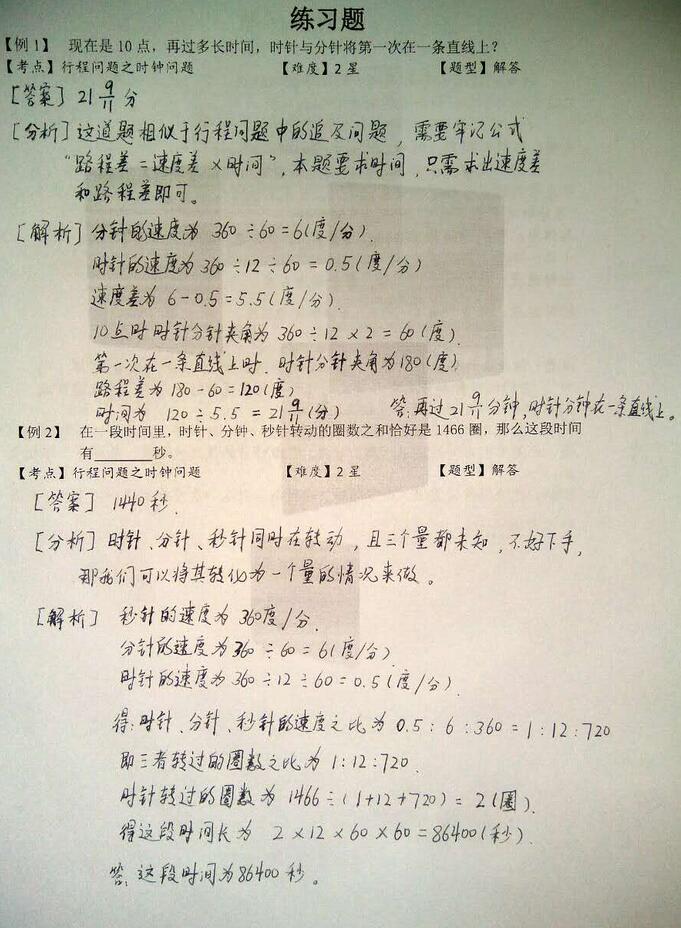 练习题
【例1】 现在是10点，再过多长时间，时针与分针将第一次在一条直线上？
【考点】行程问题之时钟问题 【难度】2星 【题型】解答
[答案] 21 9/11 分
[分析] 这道题相似于行程问题中的追及问题，需要牢记公式
“路程差=速度差×时间”，本题要求时间，只需求出速度差
和路程差即可。
[解析] 分针的速度为 360÷60=6(度/分).
时针的速度为 360÷12÷60=0.5(度/分)
速度差为 6-0.5=5.5(度/分).
10点时时针分针夹角为 360÷12×2=60(度).
第一次在一条直线上时，时针分针夹角为180(度)
路程差为 180-60=120(度)
时间为 120÷5.5=21 9/11(分) 答：再过21 9/11分钟，时针分钟在一条直线上。
【例2】 在一段时间里，时针、分钟、秒针转动的圈数之和恰好是1466圈，那么这段时间
有______秒。
【考点】行程问题之时钟问题 【难度】2星 【题型】解答
[答案] 1440秒.
[分析] 时针、分针、秒针同时在转动，且三个量都未知，不好下手，
那我们可以将其转化为一个量的情况来做。
[解析] 秒针的速度为 360度/分.
分针的速度为 360÷60=6(度/分)
时针的速度为 360÷12÷60=0.5(度/分).
得：时针、分针、秒针的速度之比为 0.5:6:360=1:12:720
即三者转过的圈数之比为 1:12:720.
时针转过的圈数为 1466÷(1+12+720)=2(圈).
得这段时间长为 2×12×60×60=86400(秒).
答：这段时间为86400秒。